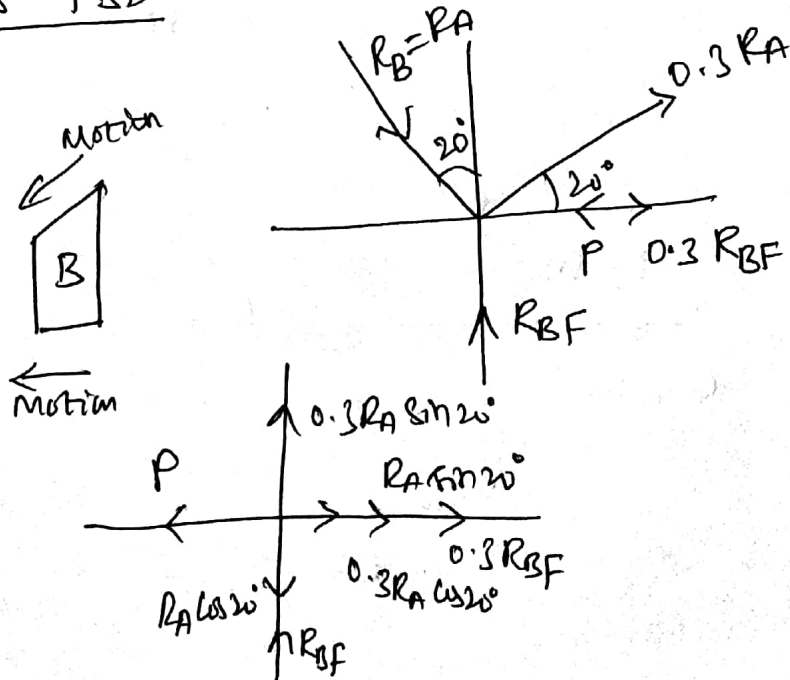 Motion
B
Motion
R_B=R_A
20°
0.3 R_A
20°
P
0.3 R_BF
R_BF
0.3R_A Sin20°
P
R_A Sin20°
0.3R_BF
0.3R_A Cos20°
R_A Cos20°
R_BF